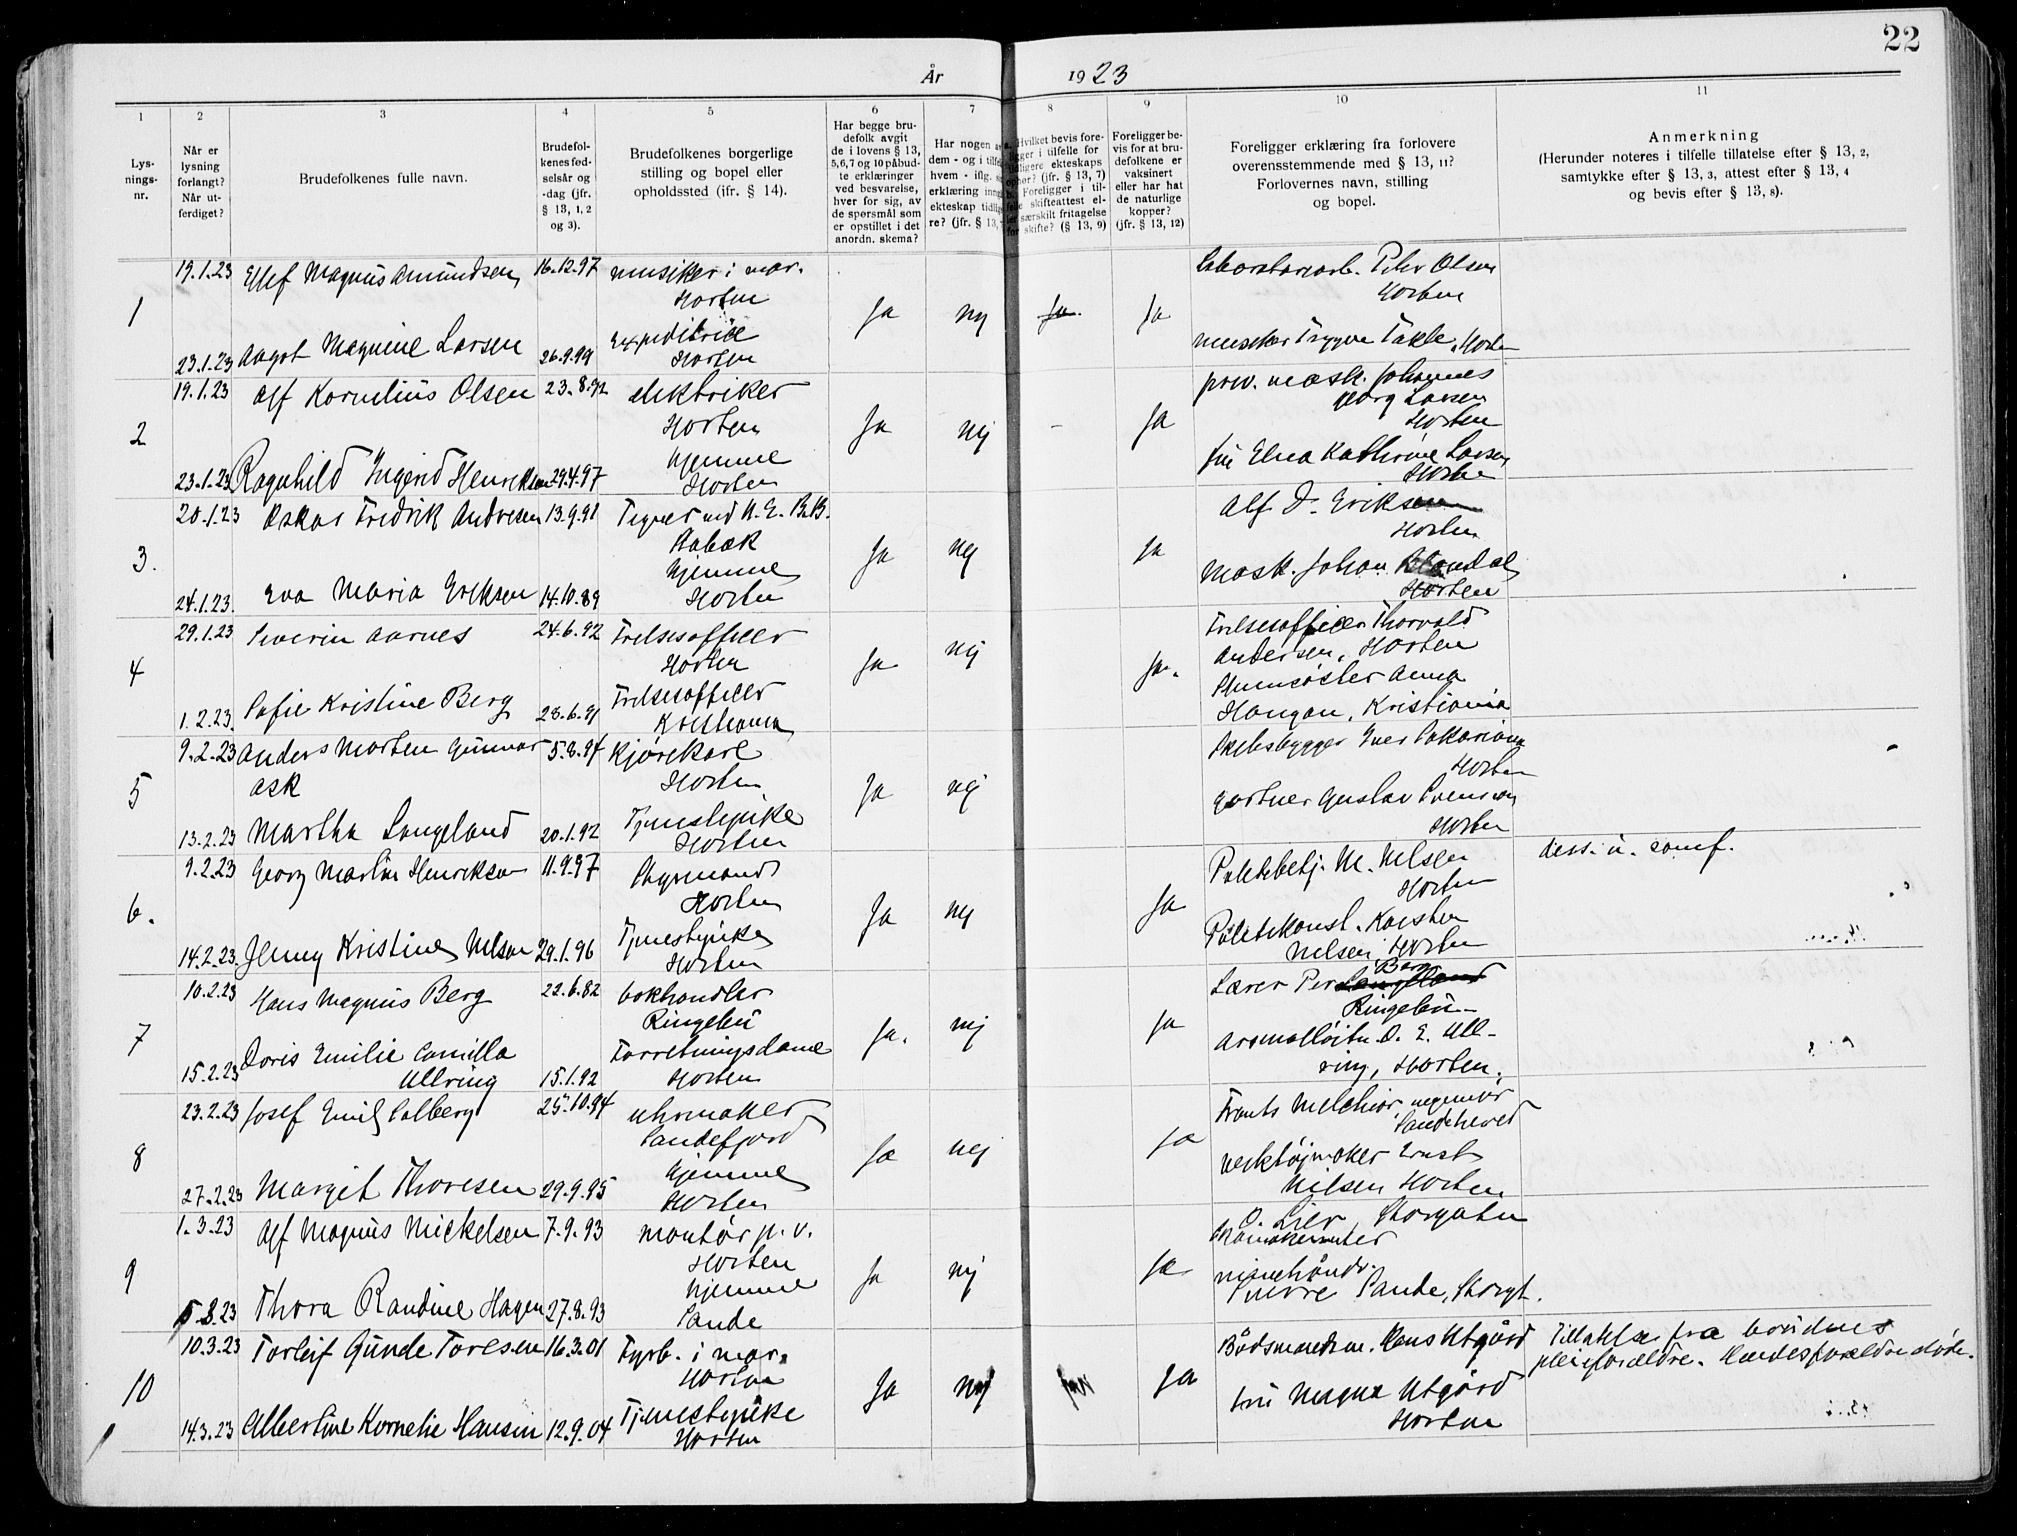 22
År 1923
1 2 3 4 5 6 7 8 9 10 11
Lys-
nings-
nr.
Når er
lysning
forlangt?
Når ut-
ferdiget?
Brudefolkenes fulle navn.
Brudefol-
kenes fød-
selsår og
-dag (jfr.
§ 13, 1, 2
og 3).
Brudefolkenes borgerlige
stilling og bopel eller
opholdssted (ifr. § 14).
Har begge bru-
defolk avgit
de i lovens § 13,
5,6,7 og 10 påbud-
te erklæringer
ved besvarelse,
hver for sig, av
de spørsmål som
er opstillet i det
anordn. skema?
Har nogen
dem - og i
hvem - iflg.
erklæring
ekteskap
re? (jfr. § 13,
Hvilket bevis fore-
ligger i tilfelle for
ekteskaps
(jfr. § 13, 7)
Foreligger i til-
skifteattest el-
særskilt fritagelse
for skifte? (§ 13, 9)
Foreligger be-
vis for at bru-
defolkene er
vaksinert
eller har hat
de naturlige
kopper?
(jfr. § 13, 12)
Foreligger erklæring fra forlovere
overensstemmende med § 13, 11?
Forlovernes navn, stilling
og bopel.
Anmerkning
(Herunder noteres i tilfelle tillatelse efter § 13, 2,
samtykke efter § 13, 3, attest efter § 13, 4
og bevis efter § 13, 8).
19.1.23 Ellef Magnus Amundsen 16.12.97 musiker i mar. Laboratoriearb. Peter Olsen
Horten Horten
1 Ja nej Ja
23.1.23 Aagot Magnine Larsen 26.9.99 Expeditrice musiker Trygve Takle, Horten
Horten
19.1.23 Alf Kornelius Olsen 23.8.92 elektriker prov. mask. Johannes
Georg Larsen
Horten Horten
2 Ja nej - Ja
hjemme frk Elna Kathrine Larsen
23.1.23 Ragnhild Ingerid Henriksen 29.4.97 Horten Horten
20.1.23 Oskar Fredrik Andresen 13.9.91 Tegner ved N. E. B.B. Alf D. Eriksen
Horten
3. Rabæk Ja nej Ja
hjemme Mask. Johan
24.1.23. Eva Maria Eriksen 14.10.89 Horten Horten
29.1.23 Severin Aarnes 24.6.92 Frelsesofficer Frelsesofficer Thorvald
4 Horten Ja nej Ja. Andersen, Horten
Sofie Kristine Berg Frelsesofficer Anna
1.2.23. 28.6.91 Kristiania Haugan, Kristiania
9.2.23 Anders Morten Gunnar 5.8.97 Kjørekarl
Ask Horten Horten
5 Ja nej gartner Gustav Svensson
13.2.23 Martha Langeland 20.1.92 Tjenestepike
Horten Horten
9.2.23 Georg Martin Henriksen 11.9.97 Styrmand Politibetj. M. Nilsen diss. u. samf.
Horten Horten
6. Ja nej Ja
14.2.23. Jenny Kristine Nilsen 29.1.96 Tjenestepike Politikonst. Karsten
Horten Nilsen, Horten
10.2.23 Hans Magnus Berg 22.6.82 bokhandler Lærer Per Berg
Ringebu Ringebu
7 Ja. nej Ja
Doris Emilie Camilla Forretningsdame O. E. Ull-
15.2.23 Ullring 15.1.92 Horten ring, Horten.
23.2.23 Josef Emil Salberg 25.10.94 uhrmaker Frants Melchior, ingeniør
Sandefjord Sandeherred
8 Ja nej Ja
hjemme verktøjmaker Ernst
27.2.23 Margit Thoresen 29.9.95 Horten Nilsen Horten
1.3.23 Alf Magnus Mickelsen 7.9.93 montør p.v. O. Lier, Storgaten
skomakermester
Horten
9 Ja nej Ja
hjemme
5.3.23 Thora Randine Hagen 27.8.93 Sande Sande, Storgt.
10.3.23 Torleif Gunde Toresen 16.3.01 Fyrb. i mar. Hans Utgård Tillatelse fra brudens
Horten pleieforældre. døde.
10 Ja nej Ja
Tjenestepike fru Magna Utgård
14.3.23 Albertine Kornelie Hansen 12.9.04 Horten Horten